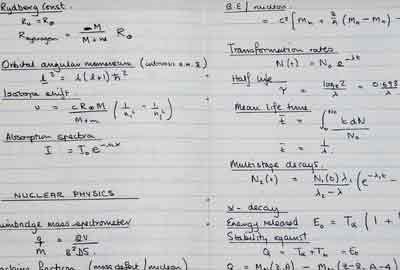 Rydberg Const.
R∞ = R∞
R hydrogen = M / M+m R∞
Orbital angular momentum
l² = l(l+1)ħ²
Isotope shift.
ν = cR∞M / M+m (1/n² - 1/n²)
Absorption spectra
I = I₀e^-nx
NUCLEAR PHYSICS
Bainbridge mass spectrometer
q/M = 2V / B²DS
fraction (mass defect/nucleon)
B.E/nucleon
= c² [Mn + (Mn - Mn) -
Transformation rates
N(t) = N₀e^-λt
Half life
τ = loge2 / λ = 0.693
Mean life time
t̄ = ∫ t dN / N₀
t̄ = 1/λ
Multistage decays.
N₂(t) = N₁(0)λ₁ / λ₂ - λ (e^-λ₁t -
α - decay
Energy released E₀ = Tα (1 +
Stability against
Q = Tα + Tb = E₀
Q = (Z,A) - (Z-2, A-4)